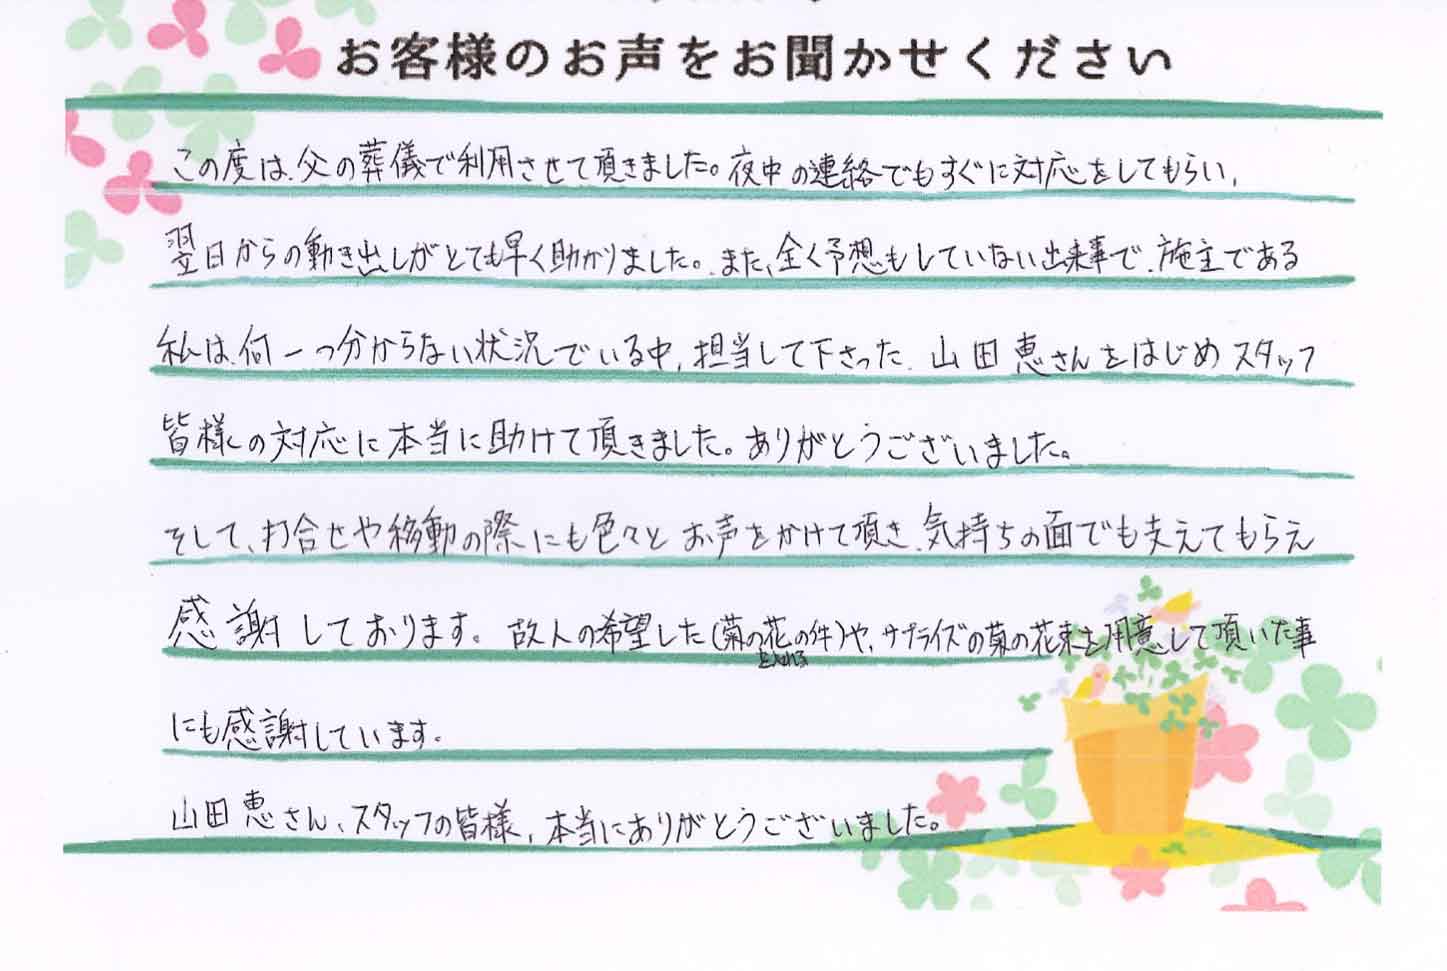 お客様のお声をお聞かせください
この度は、父の葬儀で利用させて頂きました。夜中の連絡でもすぐに対応をしてもらい、
翌日からの動き出しがとても早く助かりました。また、全く予想もしていない出来事で、施主である
私は、何一つ分からない状況でいる中、担当して下さった、山田恵さんをはじめスタッフ
皆様の対応に本当に助けて頂きました。ありがとうございました。
そして、打合せや移動の際にも色々とお声をかけて頂き、気持ちの面でも支えてもらえ
感謝しております。故人の希望した(菊の花の件)や、サプライズの菊の花束を用意して頂いた事
にも感謝しています。
山田恵さん、スタッフの皆様、本当にありがとうございました。